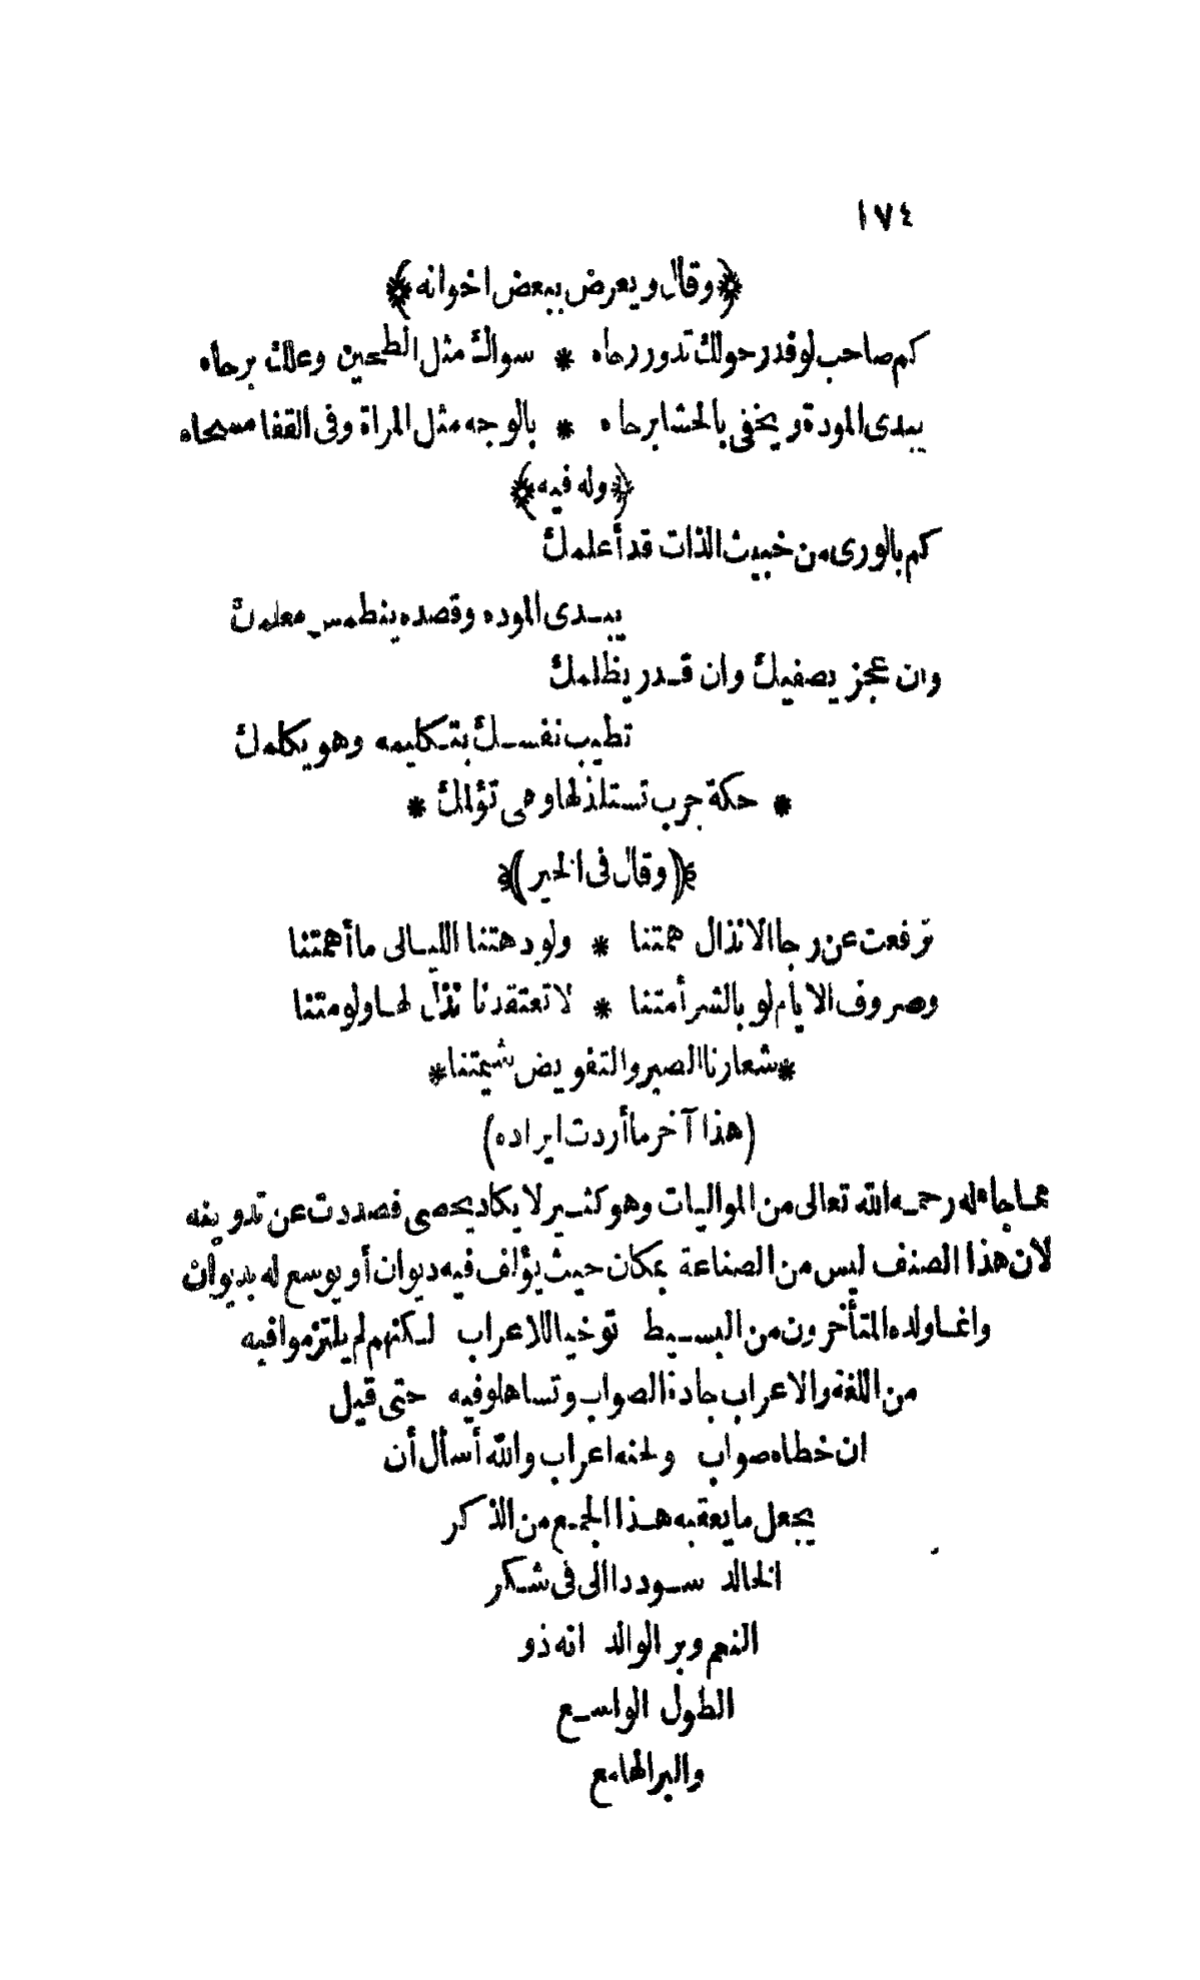 ١٧٤
﴿وقال ويعرض ببعض اخوانه﴾
كم صاحب لو قدر حولك تدور رحاه * سواك مثل الطحين وعلك برحاه
يبدى المودة ويخفى بالحشا برحاه * بالوجه مثل المراة وفى القفا مسحاه
﴿وله فيه﴾
كم بالورى من خبيث الذات قد أعلمك
يبدى الموده وقصده ينطمس معلمك
وان عجز يصفيك وان قدر يظلمك
تطيب نفسك بتكليمه وهو يكلمك
* حكة جرب تستلذ لها وهى تؤلمك *
﴿(وقال فى الخير)﴾
ترفعت عن رجا الانذال همتنا * ولو دهتنا الليالى ما أهمتنا
وصروف الايام لو بالشر أمتنا * لا تعتقدنا نذل لها ولو متنا
*شعارنا الصبر والتفويض شيمتنا*
(هذا آخر ما أردت ايراده)
مما جاء له رحمه الله تعالى من المواليات وهو كثير لا يكاد يحصى فصددت عن تدوينه
لان هذا الصنف ليس من الصناعة بمكان حيث يؤلف فيه ديوان أو يوسع له بديوان
وانما ولده المتأخرون من البسيط توخيا للاعراب لكنهم لم يلتزموا فيه
من اللغة والاعراب جادة الصواب وتساهلو فيه حتى قيل
ان خطاه صواب ولحنه اعراب والله أسأل أن
يجعل ما يعقبه هذا الجمع من الذكر
الخالد سوددا الى فى شكر
النعم وبر الوالد انه ذو
الطول الواسع
والبر الهامع